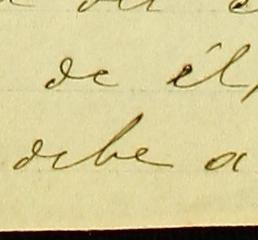 de él,
debe a